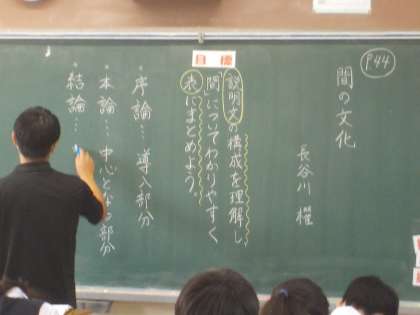 P44
間の文化
長谷川 櫂
目標
説明文の構成を理解し、
間についてわかりやすく
表にまとめよう。
・序論…導入部分
・本論…中心となる部分
・結論…